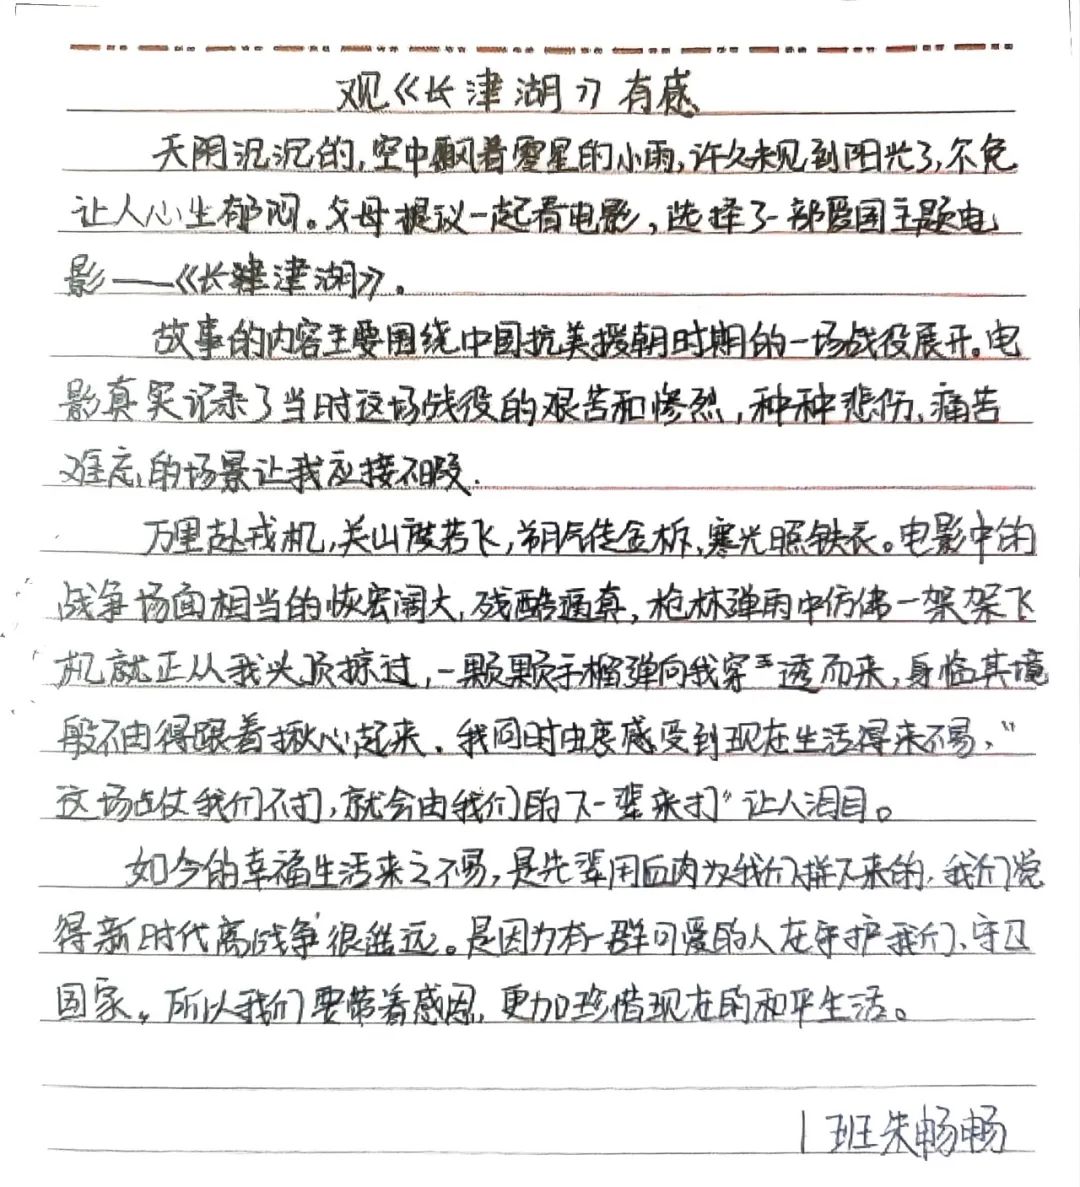 观《长津湖》有感
天阴沉沉的,空中飘着零星的小雨,许久未见到阳光了,不免
让人心生郁闷。父母提议一起看电影,选择了一部爱国主题电
影——《长津湖》。
故事的内容主要围绕中国抗美援朝时期的一场战役展开。电
影真实记录了当时这场战役的艰苦和惨烈,种种悲伤、痛苦
难忘的场景让我应接不暇.
万里赴戎机,关山度若飞,朔气传金柝,寒光照铁衣。电影中的
战争场面相当的恢宏阔大,残酷逼真,枪林弹雨中仿佛一架架飞
机就正从我头顶掠过,一颗颗手榴弹向我穿透而来,身临其境
般不由得跟着揪心起来.我同时由衷感受到现在生活得来不易,“
这场战仗我们不打,就会由我们的下一辈来打”让人泪目。
如今的幸福生活来之不易,是先辈用血肉为我们拼下来的.我们觉
得新时代离战争很遥远。是因为有一群可爱的人在守护我们、守卫
国家。所以我们要带着感恩,更加珍惜现在的和平生活。
1班朱畅畅